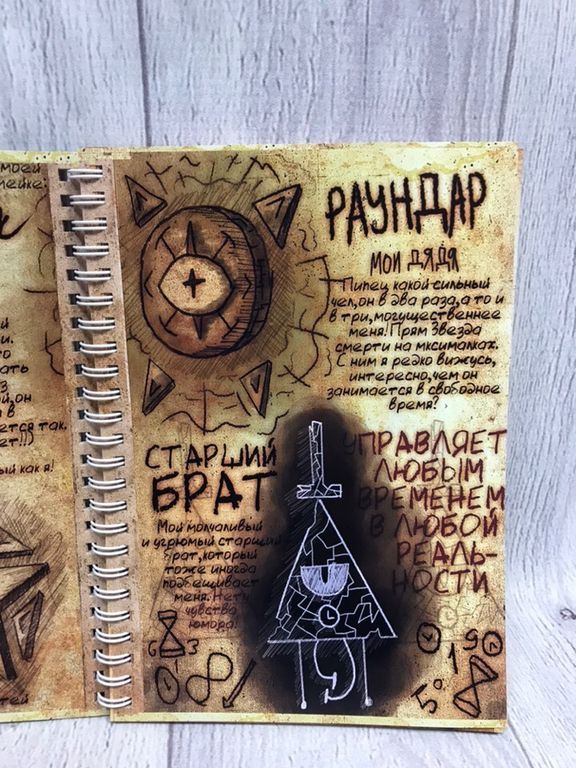 моей
мейке:
й
и.
то
ать
з
ой,он
в
ется так.
ет!!)
ый как я!
тей
РАУНДАР
МОЙ ДЯДЯ
Пипец какой сильный
чел,он в два раза,а то и
в три,могущественнее
меня!Прям Звезда
смерти на мксималках.
С ним я редко вижусь,
интересно,чем он
занимается в свободное
время?
СТАРШИЙ
БРАТ
Мой молчаливый
и угрюмый старший
брат,который
тоже иногда
подбешивает
меня.Нет
чувства
юмора!
УПРАВЛЯЕТ
ЛЮБЫМ
ВРЕМЕНЕМ
В ЛЮБОЙ
РЕАЛЬ-
НОСТИ
6 3
1 9
5°